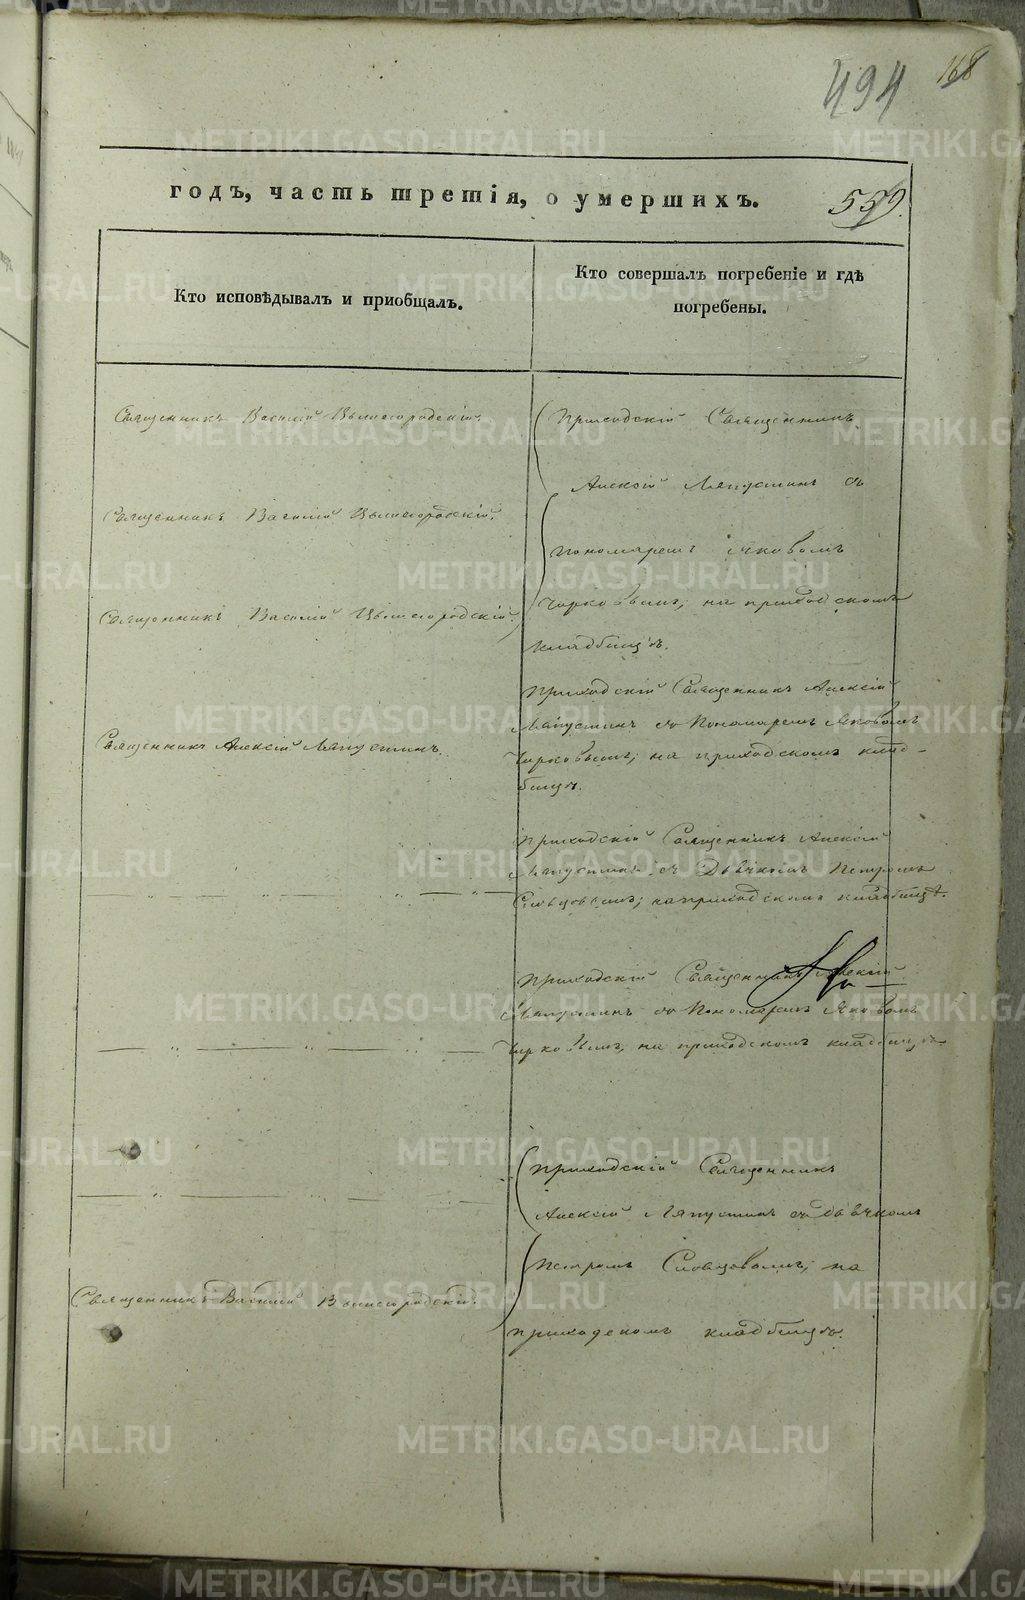 494
168
годъ, часть третія, о умершихъ.
559.
Кто исповѣдывалъ и пріобщалъ.
Кто совершалъ погребеніе и гдѣ
погребены.
Священникъ Василій Вышегородскій.
Приходскій Священникъ
Алексій Ляпустинъ съ
Священникъ Василій Вышегородскій.
пономаремъ Яковомъ
Чирковымъ; на приходскомъ
Священникъ Василій Вышегородскій.
кладбищѣ.
Приходскій Священникъ Алексій
Ляпустинъ съ Пономаремъ Яковомъ
Священникъ Алексій Ляпустинъ.
Чирковымъ; на приходскомъ клад-
бищѣ.
Приходскій Священникъ Алексій
Ляпустинъ съ Дьячкомъ Петромъ
— „ — „ —
Словцовымъ; на приходскомъ кладбищѣ.
Приходскій Священникъ Алексій
Ляпустинъ съ Пономаремъ Яковомъ
— „ — „ —
Чирковымъ, на приходскомъ кладбищѣ.
Приходскій Священникъ
— „ — „ —
Алексій Ляпустинъ съ дьячкомъ
Петромъ Словцовымъ; на
Священникъ Василій Вышегородскій.
приходскомъ кладбищѣ.
METRIKI.GASO-URAL.RU